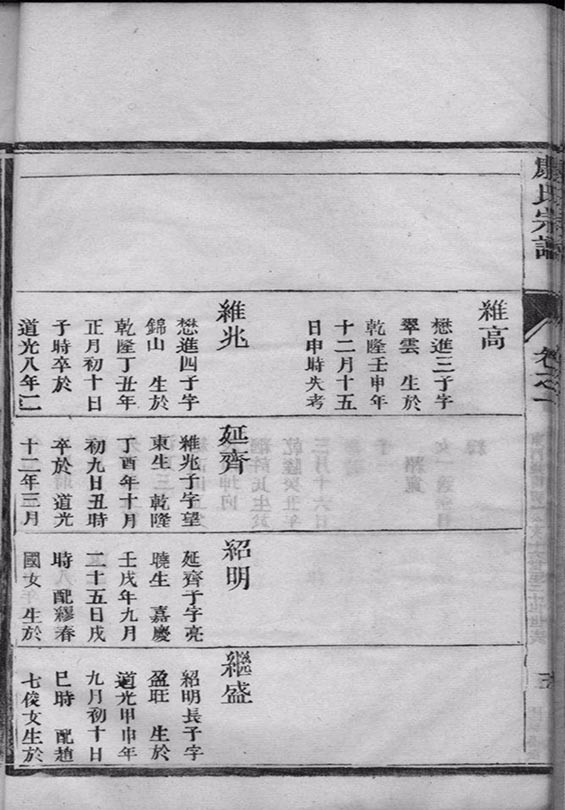 康氏宗譜
卷之一
維高
懋進三子字
翠雲 生於
乾隆壬申年
十二月十五
日申時失考
維兆
懋進四子字
錦山 生於
乾隆丁丑年
正月初十日
子時卒於
道光八年二
延齊
維兆子字望
東生 乾隆
丁酉年十月
初九日丑時
卒於 道光
十二年三月
紹明
延齊子字亮
曉生 嘉慶
壬戌年九月
二十五日戌
時 配繆春
國女 生於
繼盛
紹明長子字
盈旺 生於
道光甲申年
九月初十日
巳時 配趙
七俊女生於